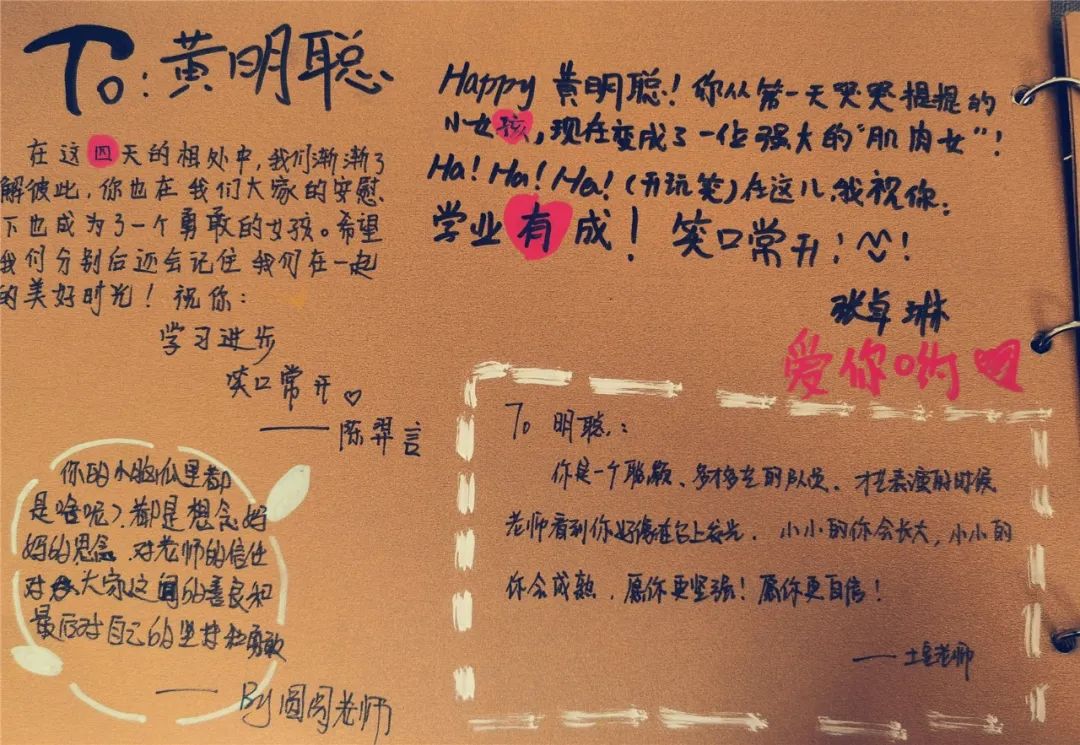 To:黄明聪
在这四天的相处中,我们渐渐了
解彼此,你也在我们大家的安慰
下也成为了一个勇敢的女孩。希望
我们分别后还会记住我们在一起
的美好时光!祝你:
学习进步
笑口常开♡
——陈羿言
Happy 黄明聪!你从第一天哭哭提提的
小女孩,现在变成了一位强大的"肌肉女"!
Ha!Ha!Ha!(开玩笑)在这儿,我祝你:
学业有成!笑口常开!!
张卓琳
爱你哟
你的小脑瓜里都
是啥呢?都是想念妈
妈的思念,对老师的信任
对大家这间的善良和
最后对自己的坚持和勇敢
——By圆圆老师
To 明聪:
你是一个聪颖、多才多艺的队员。才艺表演的时候
老师看到你好像在台上发光。小小的你会长大,小小的
你会成熟,愿你更坚强!愿你更自信!
——土星老师